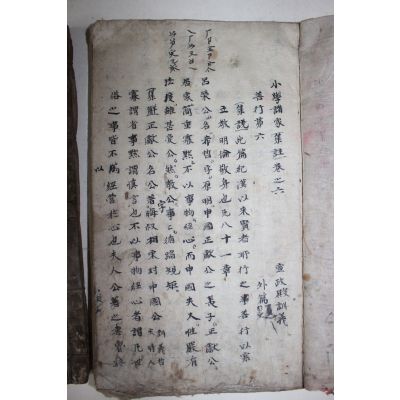 小學諸家集註卷之六
宣政殿訓義
外篇
善行第六
集說此篇紀漢以來賢者所行之事善行以實
立敎明倫敬身也凡八十一章
呂滎公名希哲字原明申國正獻公之長子正獻公
居家簡重寡默不以事物經心而申國夫人性嚴有
法度雖甚愛公然敎公事事循蹈規矩
集解正獻公名公著字晦叔相宋封申國公
寡謂省事默謂慎言也不以事物經心者謂凡世
俗之事皆不屑經營於心也夫人公著之妻魯
以